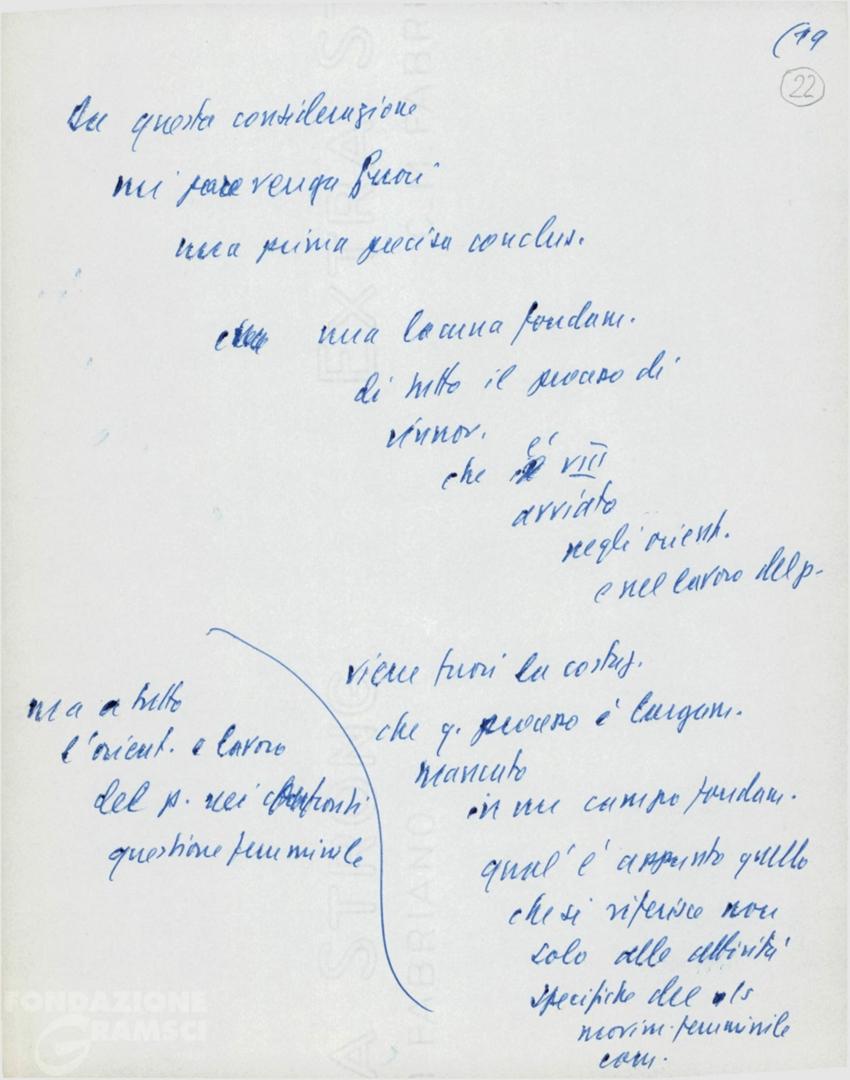 (19
22
Da questa considerazione
mi pare venga fuori
una prima precisa conclus.
una lacuna fondam.
di tutto il processo di
rinnov.
che è VIII
avviato
negli orient.
e nel lavoro del p.
viene fuori la costaz.
che q. processo è largam.
mancato
in un campo fondam.
qual'è appunto quello
che si riferisce non
solo alle attività
specifiche del
movim. femminile
com.
ma a tutto
l'orient. e lavoro
del p. nei confronti
questione femminile
FONDAZIONE
GRAMSCI